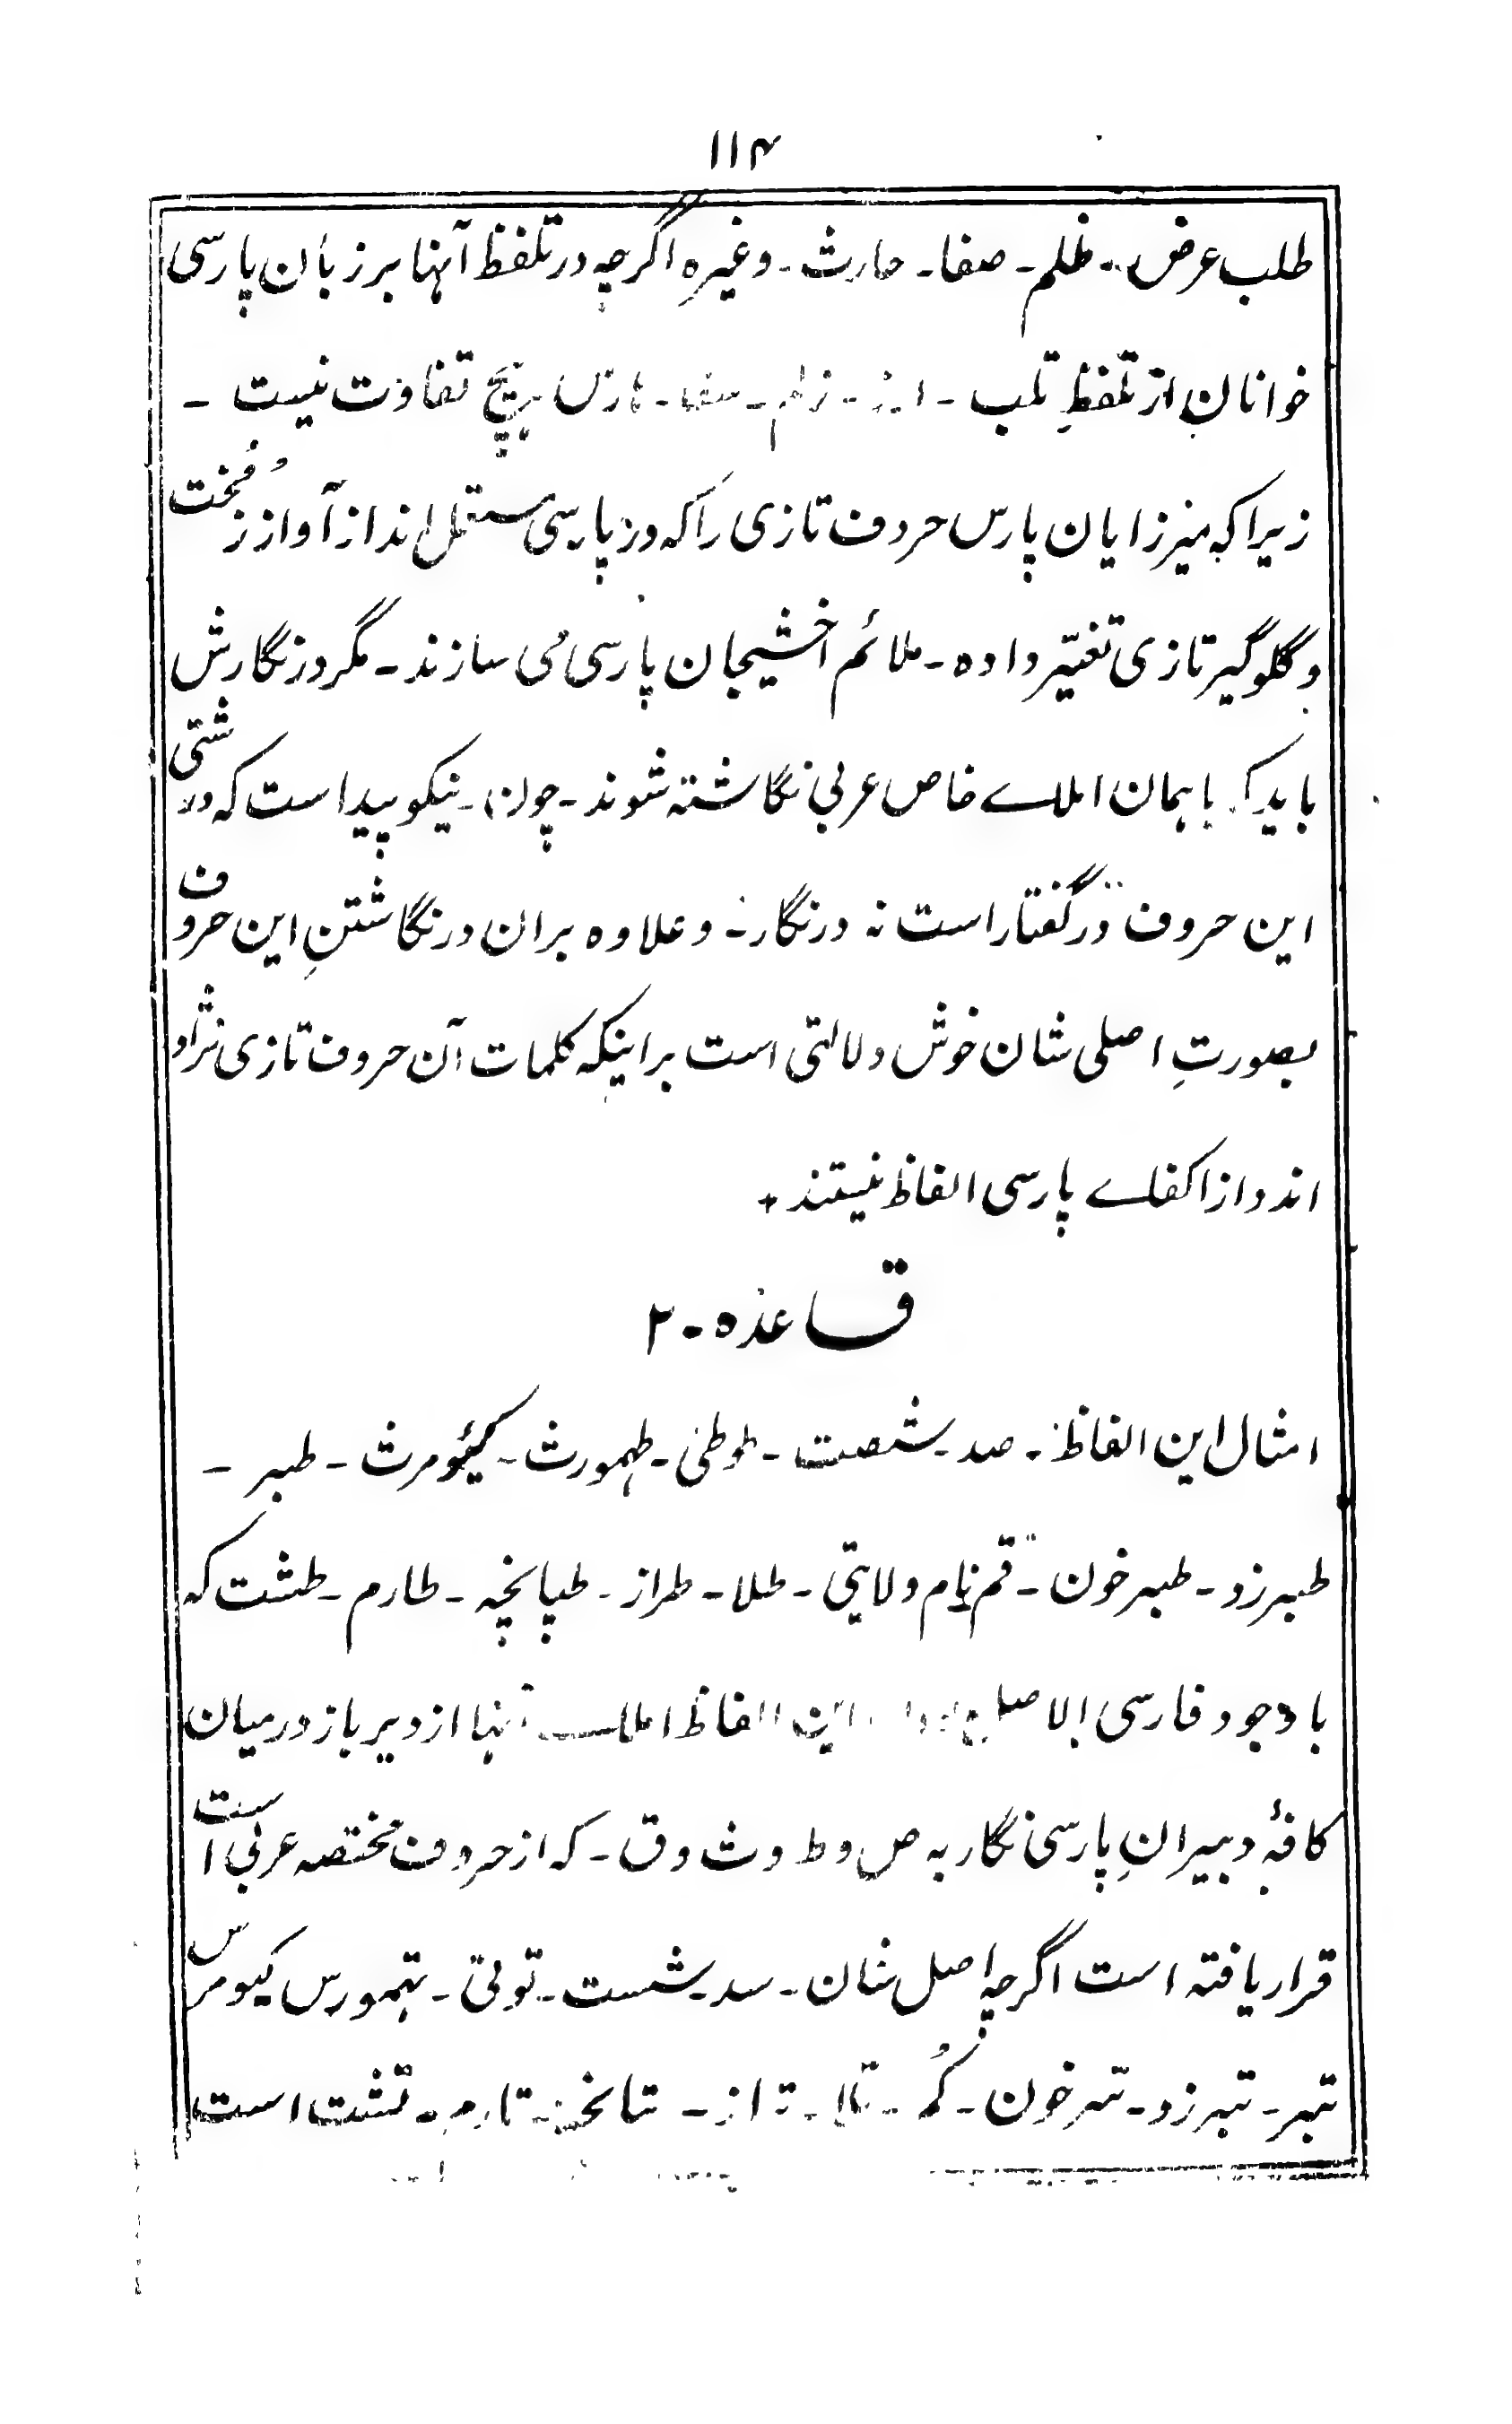 ۱۱۴
طلب عرض - ظلم - صفا - حارث - وغیره اگرچه در تلفظ آنها بر زبان پارسی
خوانان از تلفظِ تلب - ارز - زلم - سفا - هارس هیچ تفاوت نیست -
زیرا که میرزایان پارس حروف تازی را که در پارسی مستعمل اند از آواز زُمُخت
و گلوگیر تازی تغیّر داده - ملائم اخشیجان پارسی می سازند - مگر در نگارش
باید که باهمان املاے خاص عربی نگاشته شوند - چون نیکو پیدا است که درشتی
این حروف در گفتار است نه در نگار - و علاوه بران در نگاشتنِ این حروف
بصورتِ اصلی شان خوش دلالتی است بر اینکه کلمات آن حروف تازی نژاد
اند و از اکفاے پارسی الفاظ نیستند +
قاعده - ۲
امثال این الفاظ - صد - شصت - طوطی - طهمورث - کیُومرث - طبر -
طبرزد - طبرخون - قم نام ولایتی - طلا - طراز - طپانچه - طارم - طشت که
باوجود فارسی الاصل این الفاظ املاے آنها از دیر باز درمیان
کافهٔ دبیرانِ پارسی نگار به ص و ط و ث و ق - که از حروف مختصه عربی است
قرار یافته است اگرچه اصل شان - سد - شست - توتی - تهمورس کیومرس
تبر - تبرزد - تبرخون - کُم - تلا - تراز - تپانچه - تارم - تشت است